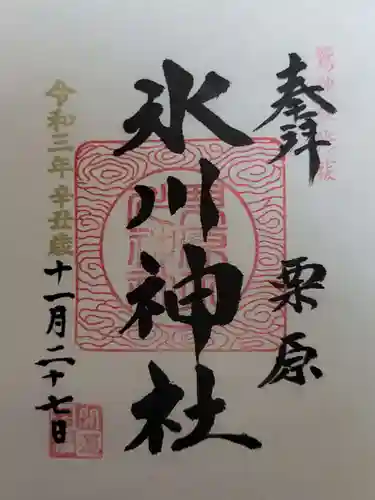 奉拝
栗原
氷川神社
令和三年辛丑歳
十一月二十七日